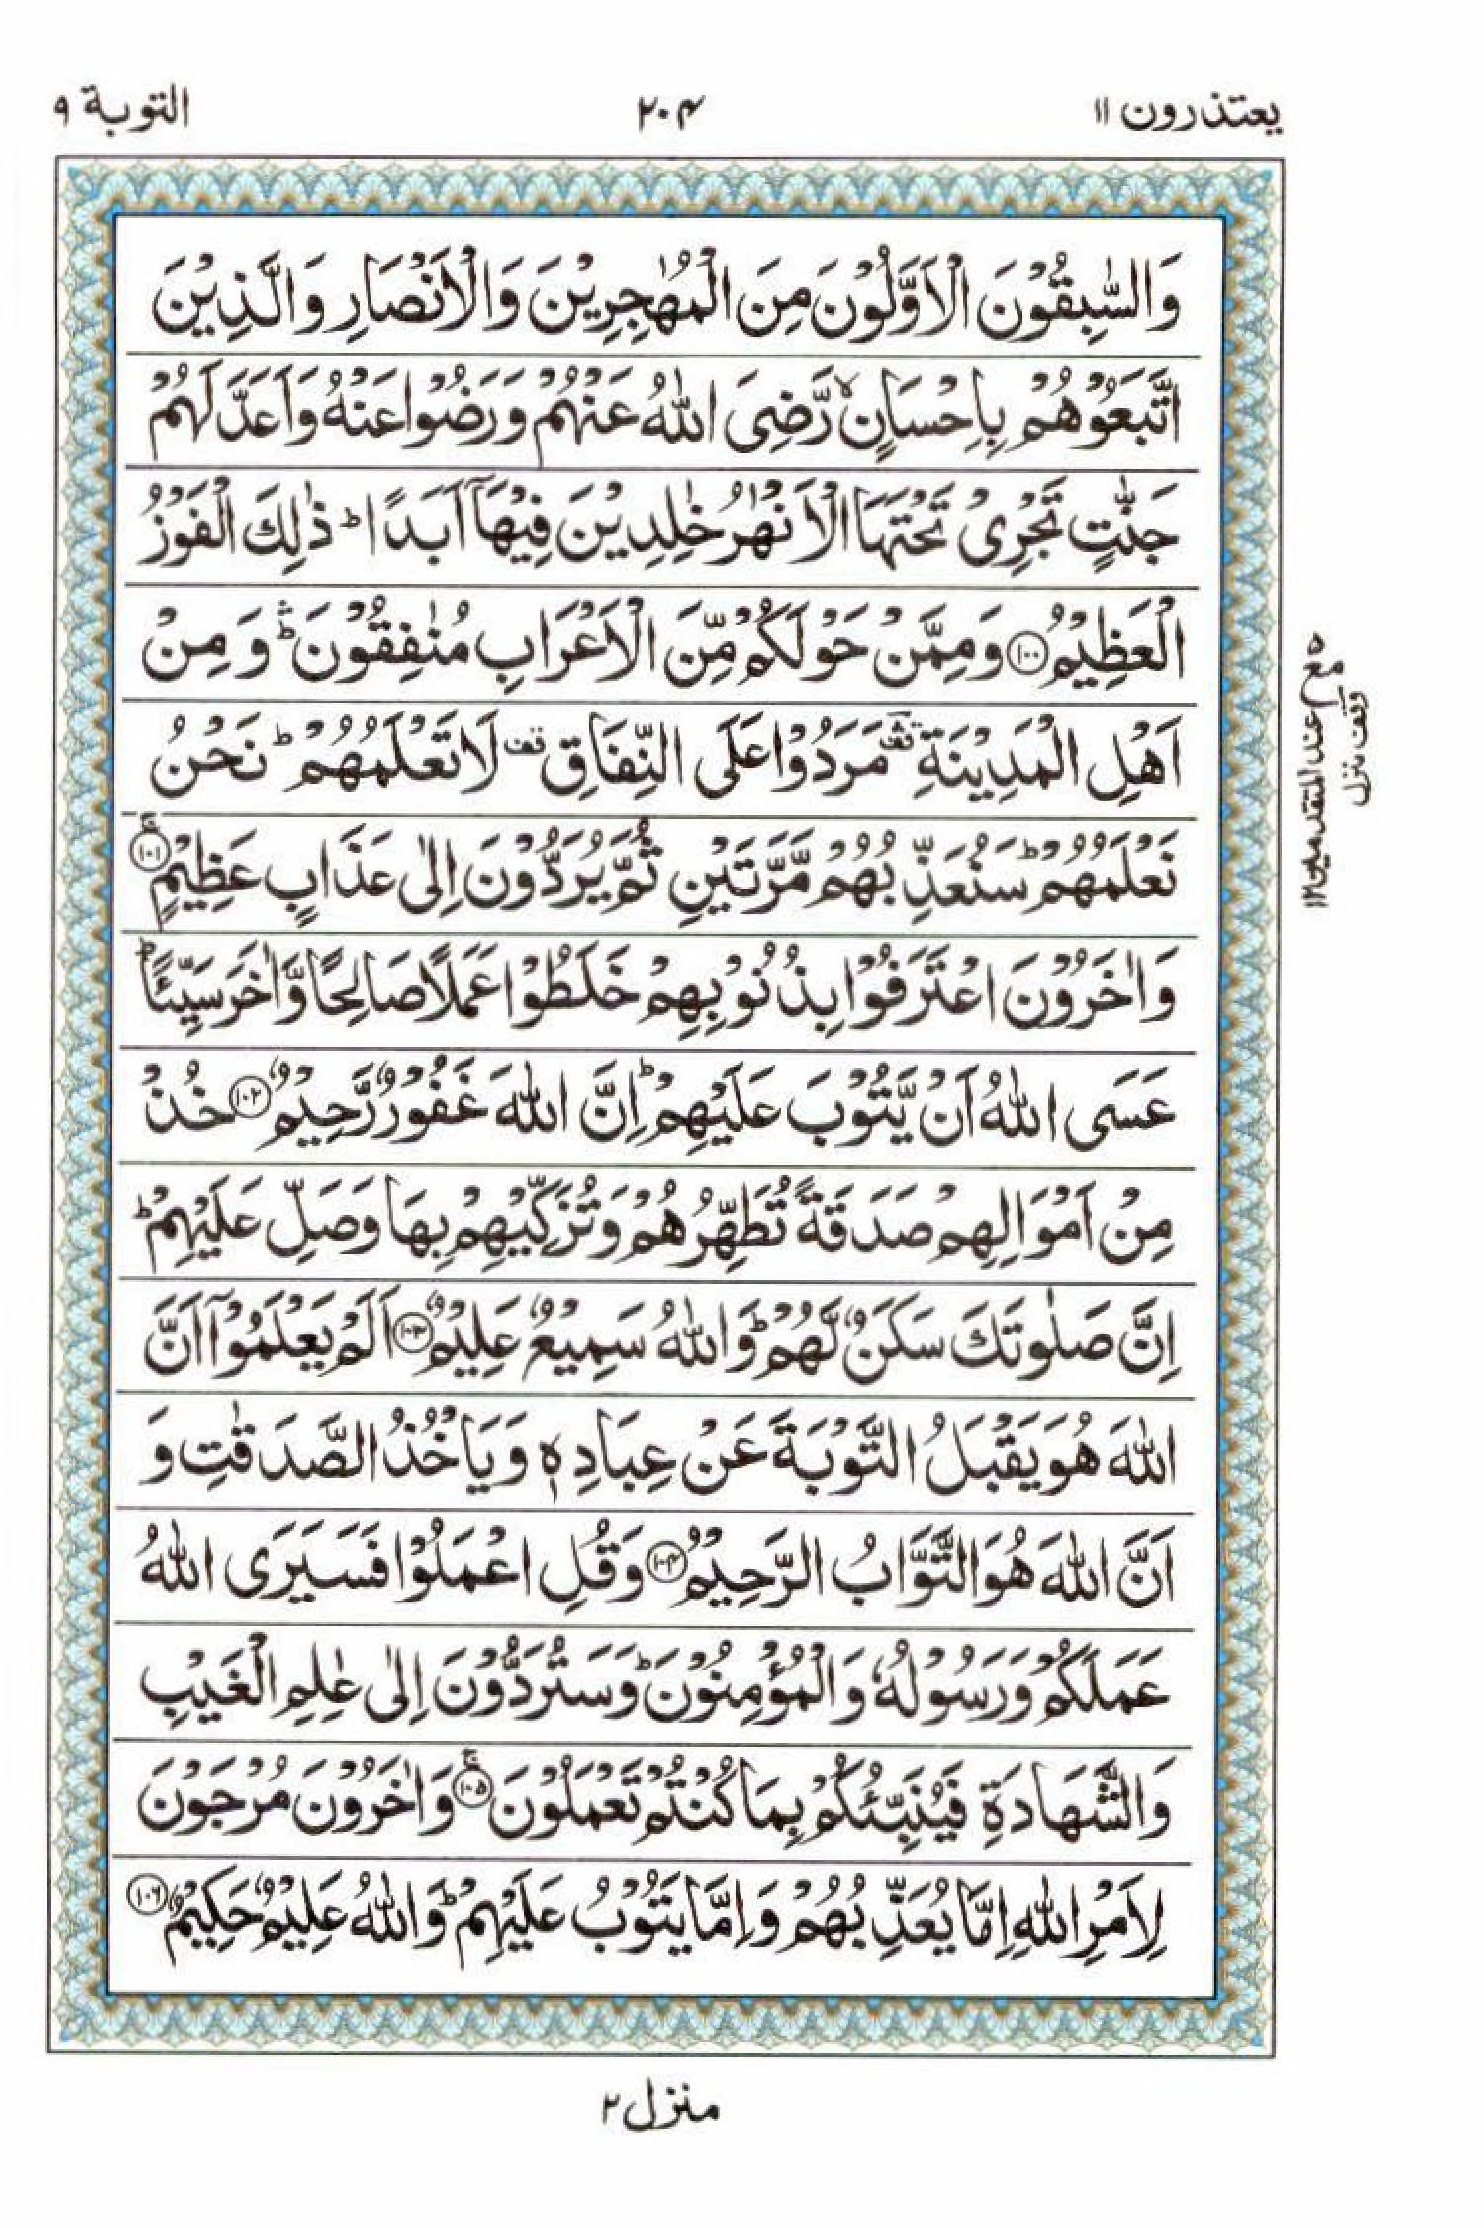 يعتذرون ۱۱
۲۰۴
التوبة ۹
وَالسّٰبِقُوْنَ الْاَوَّلُوْنَ مِنَ الْمُهٰجِرِيْنَ وَالْاَنْصَارِ وَالَّذِيْنَ
اتَّبَعُوْهُمْ بِاِحْسَانٍ ۙ رَّضِىَ اللّٰهُ عَنْهُمْ وَرَضُوْا عَنْهُ وَاَعَدَّ لَهُمْ
جَنّٰتٍ تَجْرِىْ تَحْتَهَا الْاَنْهٰرُ خٰلِدِيْنَ فِيْهَآ اَبَدًا ؕ ذٰلِكَ الْفَوْزُ
الْعَظِيْمُ ۝۱۰۰ وَمِمَّنْ حَوْلَكُمْ مِّنَ الْاَعْرَابِ مُنٰفِقُوْنَ ؕ ۛ وَمِنْ
اَهْلِ الْمَدِيْنَةِ ۛ ؔقف مَرَدُوْا عَلَى النِّفَاقِ قف لَا تَعْلَمُهُمْ ؕ نَحْنُ
نَعْلَمُهُمْ ؕ سَنُعَذِّبُهُمْ مَّرَّتَيْنِ ثُمَّ يُرَدُّوْنَ اِلٰى عَذَابٍ عَظِيْمٍ ۝۱۰۱ۚ
وَاٰخَرُوْنَ اعْتَرَفُوْا بِذُنُوْبِهِمْ خَلَطُوْا عَمَلًا صَالِحًا وَّاٰخَرَ سَيِّئًا ؕ
عَسَى اللّٰهُ اَنْ يَّتُوْبَ عَلَيْهِمْ ؕ اِنَّ اللّٰهَ غَفُوْرٌ رَّحِيْمٌ ۝۱۰۲ خُذْ
مِنْ اَمْوَالِهِمْ صَدَقَةً تُطَهِّرُهُمْ وَتُزَكِّيْهِمْ بِهَا وَصَلِّ عَلَيْهِمْ ؕ
اِنَّ صَلٰوتَكَ سَكَنٌ لَّهُمْ ؕ وَاللّٰهُ سَمِيْعٌ عَلِيْمٌ ۝۱۰۳ اَلَمْ يَعْلَمُوْٓا اَنَّ
اللّٰهَ هُوَ يَقْبَلُ التَّوْبَةَ عَنْ عِبَادِهٖ وَيَاْخُذُ الصَّدَقٰتِ وَ
اَنَّ اللّٰهَ هُوَ التَّوَّابُ الرَّحِيْمُ ۝۱۰۴ وَقُلِ اعْمَلُوْا فَسَيَرَى اللّٰهُ
عَمَلَكُمْ وَرَسُوْلُهٗ وَالْمُؤْمِنُوْنَ ؕ وَسَتُرَدُّوْنَ اِلٰى عٰلِمِ الْغَيْبِ
وَالشَّهَادَةِ فَيُنَبِّئُكُمْ بِمَا كُنْتُمْ تَعْمَلُوْنَ ۝۱۰۵ۚ وَاٰخَرُوْنَ مُرْجَوْنَ
لِاَمْرِ اللّٰهِ اِمَّا يُعَذِّبُهُمْ وَاِمَّا يَتُوْبُ عَلَيْهِمْ ؕ وَاللّٰهُ عَلِيْمٌ حَكِيْمٌ ۝۱۰۶
مع ه عند المتقدمين ۱۲
وقف منزل
منزل ۲